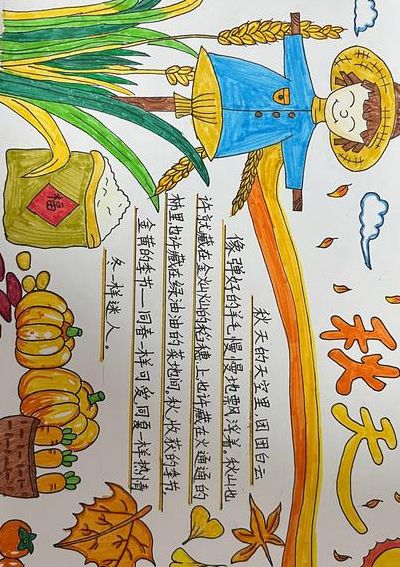 秋天
福
秋天的天空里,团团白云
像弹好的羊毛,慢慢地飘浮着。秋也
许就藏在金灿灿的稻穗上,也许藏在火通通的
柿里,也许藏在绿油油的菜地间。秋,收获的季节,
金黄的季节——同春一样可爱,同夏一样热情
冬一样迷人。